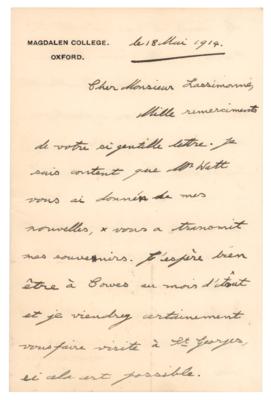 MAGDALEN COLLEGE,
OXFORD.
le 18 Mai 1914.
Cher Monsieur Lassimonne,
Mille remerciments
de votre si gentille lettre. Je
suis content que Mr Hatt
vous ai donné de mes
nouvelles, & vous a transmit
mes souvenirs. J'espère bien
être à Cowes au mois d'Août
et je viendrey certainement
vous faire visite à St Georges,
si cela est possible.